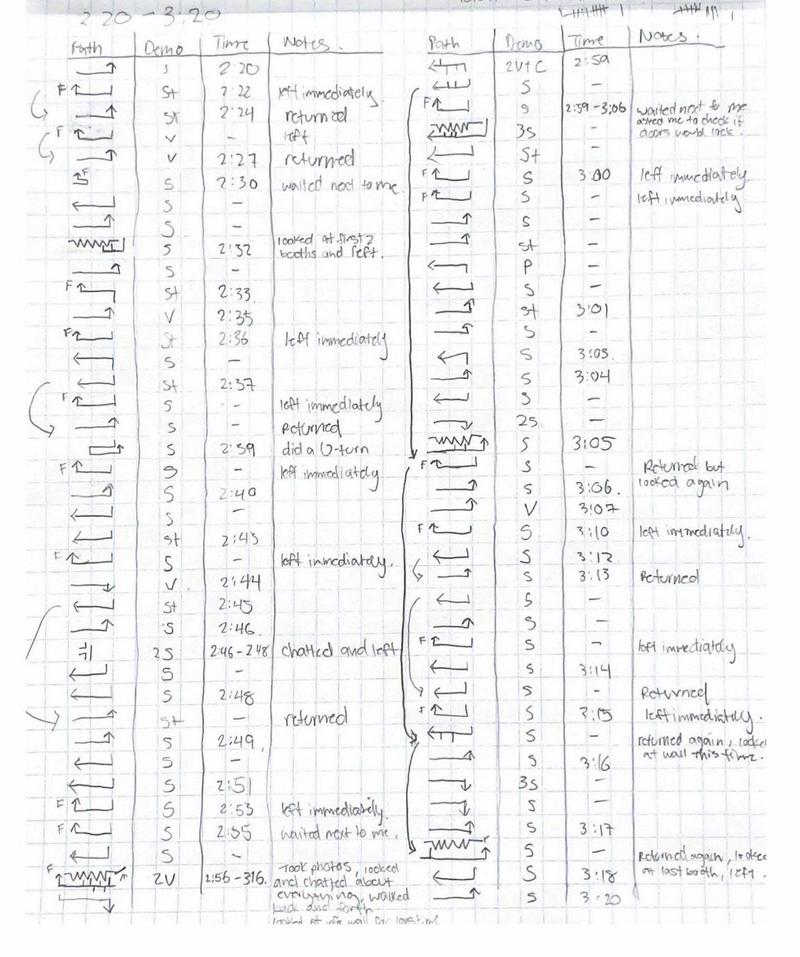 2 20 - 3.20
Path Demo Time Notes.
S 2:20
F St 2:22 left immediately
St 2:24 returned
F V - left
V 2:27 returned
F S 2:30 waited next to me
S -
S -
S 2:32 looked at first 2
booths and left.
S -
F St 2:33
V 2:35
F St 2:36 left immediately
S -
St 2:37
F S - left immediately
S - Returned
S 2:39 did a U-turn
F S - left immediately
S 2:40
S -
St 2:43
F S - left immediately.
V 2:44
St 2:45
S 2:46
2S 2:46-2:48 chatted and left
S -
S 2:48
St - returned
S 2:49
S -
S 2:51
F S 2:53 left immediately.
F S 2:55 waited next to me.
S -
F 2V 2:56-316. Took photos, looked
and chatted about
everything, walked
back and forth.
looked at
Path Demo Time Notes.
2V+C 2:59
S -
F S 2:59-3:06 waited next to me
asked me to check if
doors would lock.
3S -
St -
F S 3:00 left immediately
F S - left immediately
S -
St -
P -
S -
St 3:01
S -
S 3:03.
S 3:04
S -
2S -
S 3:05
F S - Returned but
looked again
S 3:06.
V 3:07
F S 3:10 left immediately.
S 3:12
S 3:13 Returned
S -
S -
F S - left immediately
S 3:14
S - Returned
F S 3:15 left immediately.
S - returned again, looked
at wall this time.
S 3:16
3S -
S -
S 3:17
S - Returned again, looked
at last booth, left.
S 3:18
S 3:20